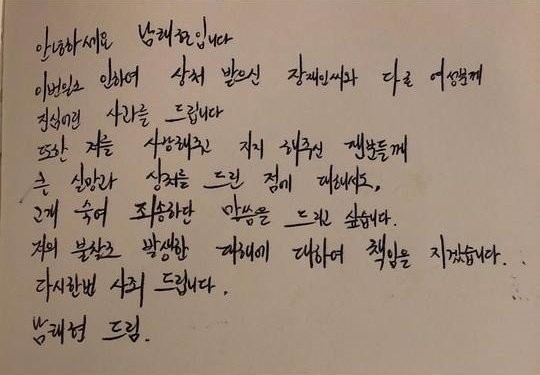 안녕하세요 남태현입니다
이번일로 인하여 상처 받으신 장재인씨와 다른 여성분께
진심어린 사과를 드립니다
또한 저를 사랑해주고 지지 해주신 팬분들께
큰 실망과 상처를 드린 점에 대해서도,
고개 숙여 죄송하단 말씀을 드리고 싶습니다.
저의 불찰로 발생한 피해에 대하여 책임을 지겠습니다.
다시한번 사죄 드립니다.
남태현 드림.